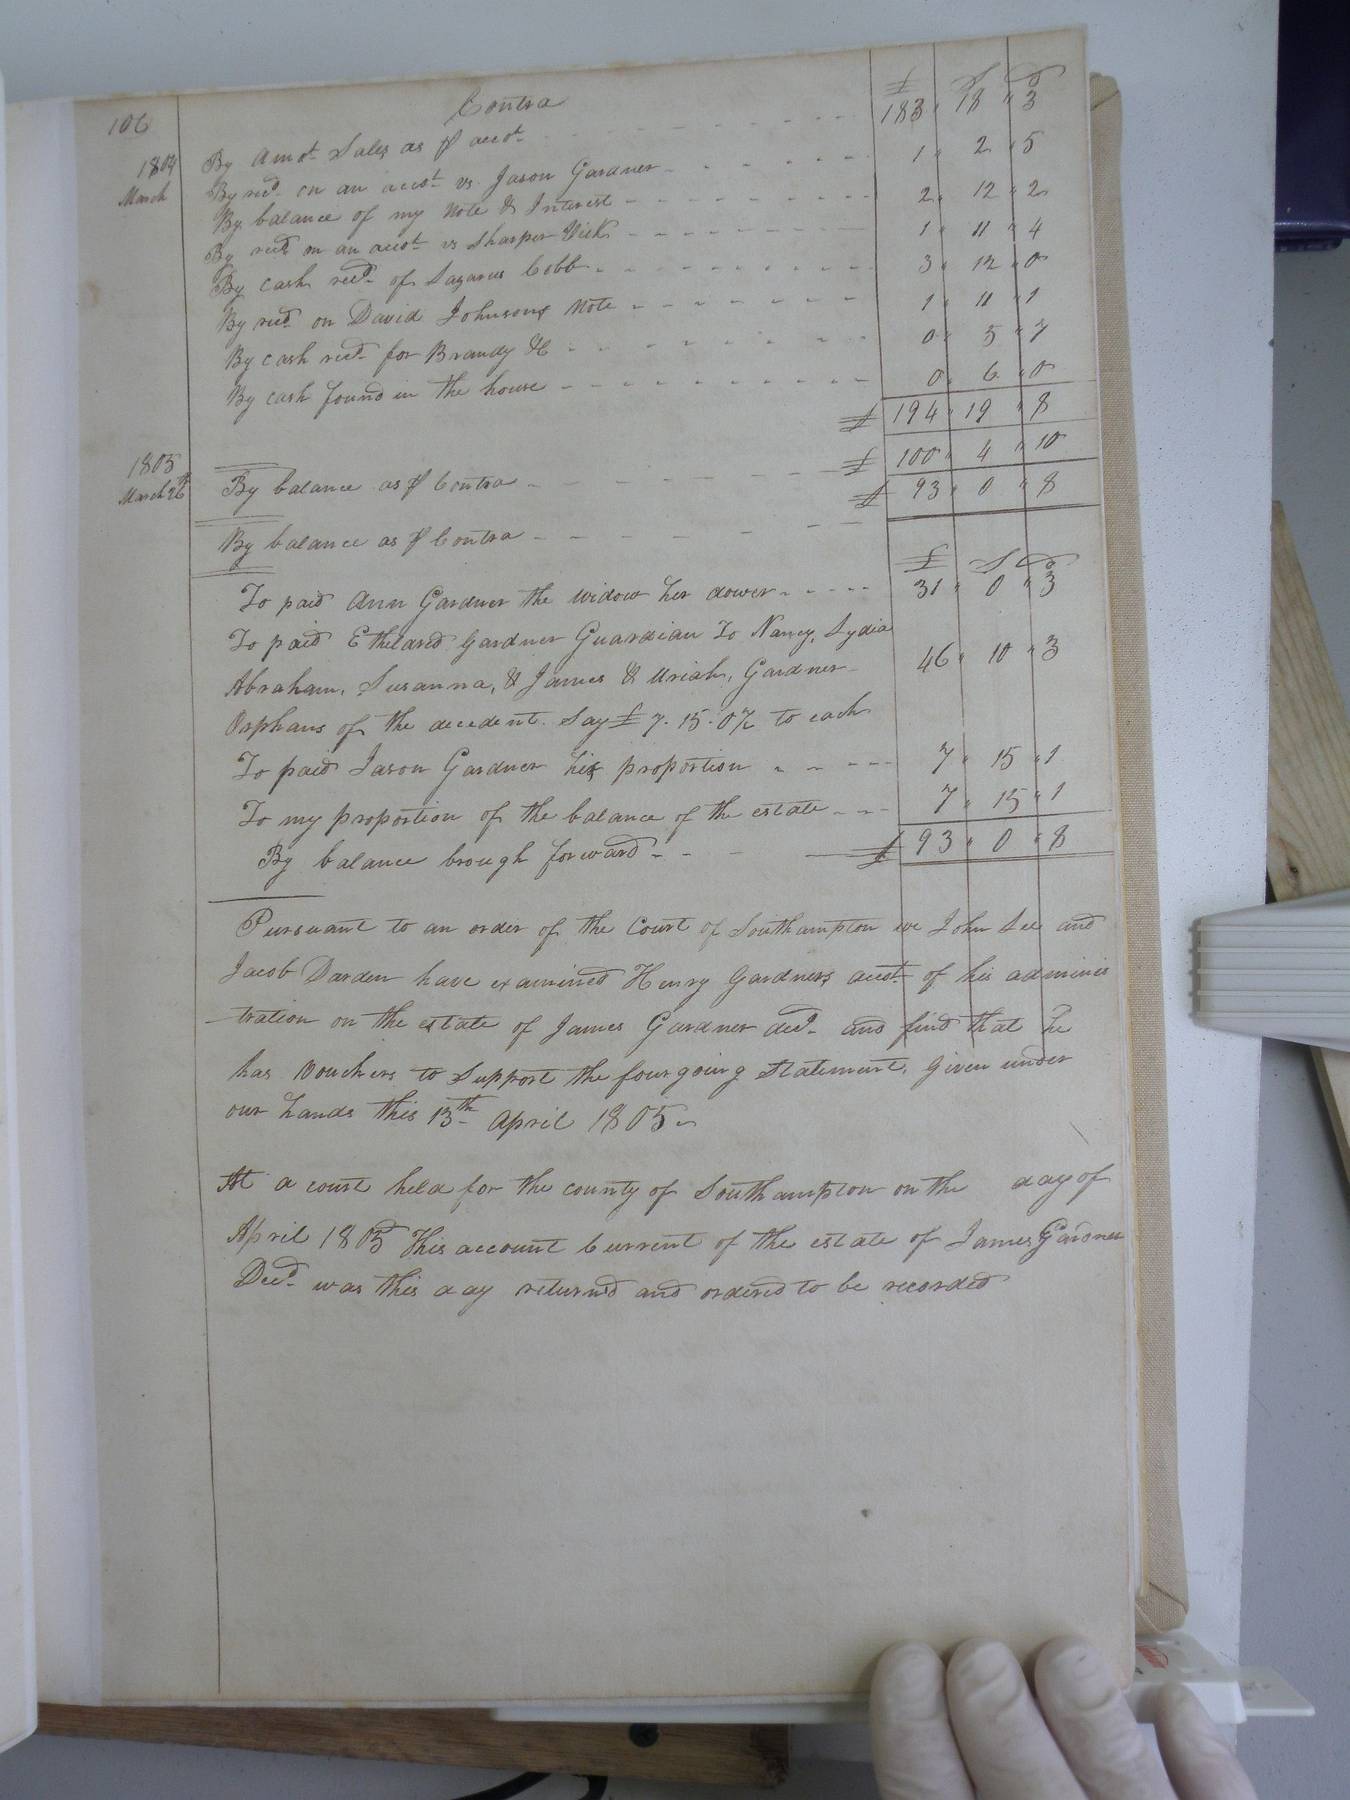 106
Contra
£ S D
1804 By Amot. Sales as ⅌ accot. 183 " 18 " 3
March By recd. on an accot. vs. Jason Gardner 1 " 2 " 5
By balance of my Note & Interest 2 " 12 " 2
By recd on an accot. vs Sharper Vick 1 " 11 " 4
By Cash recd. of Lazarus Cobb 3 " 12 " 0
By recd. on David Johnsons Note 1 " 11 " 1
By cash recd. for Brandy &C 0 " 5 " 7
By cash found in the house 0 " 6 " 0
£ 194 " 19 " 8
1805 £ 100 " 4 " 10
March 26th By balance as ⅌ Contra £ 93 " 0 " 8
By balance as ⅌ Contra
£ S D
To paid Ann Gardner the widow her dower 31 " 0 " 3
To paid Etheldred Gardner Guardian To Nancy, Lydia
Abraham, Susanna, & James & Uriah, Gardner 46 " 10 " 3
Orphans of the decedent. Say £ 7. 15. 0½ to each
To paid Jason Gardner his proportion 7 " 15 " 1
To my proportion of the balance of the estate 7 " 15 " 1
By balance brough forward £ 93 " 0 " 8
Pursuant to an order of the Court of Southampton we John Lee and
Jacob Darden have examined Henry Gardners accot. of his adminis
tration on the estate of James Gardner decd. and find that he
has Vouchers to Support the fourgoing Statement. Given under
our hands this 13th April 1805
At a court held for the county of Southampton on the day of
April 1805 This account Current of the estate of James Gardner
Decd. was this day returnd and ordered to be recorded